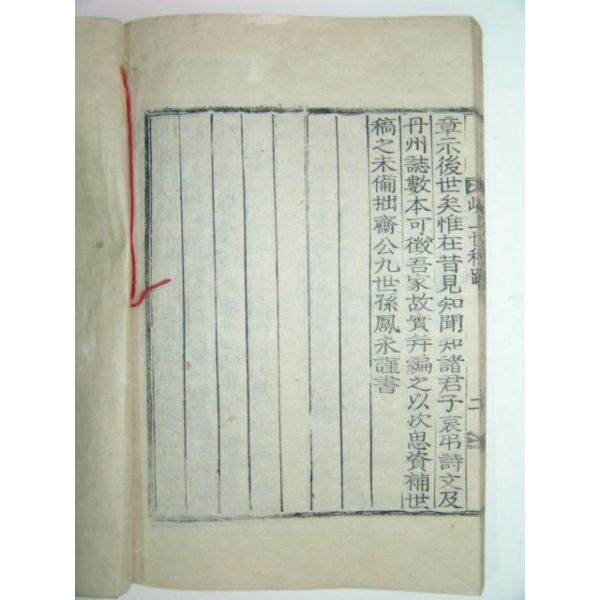 章示後世矣惟在昔見知聞知諸君子哀弔詩文及
丹州誌數本可徵吾家故實幷編之以次思資補世
稿之未備拙齋公九世孫鳳永謹書
二